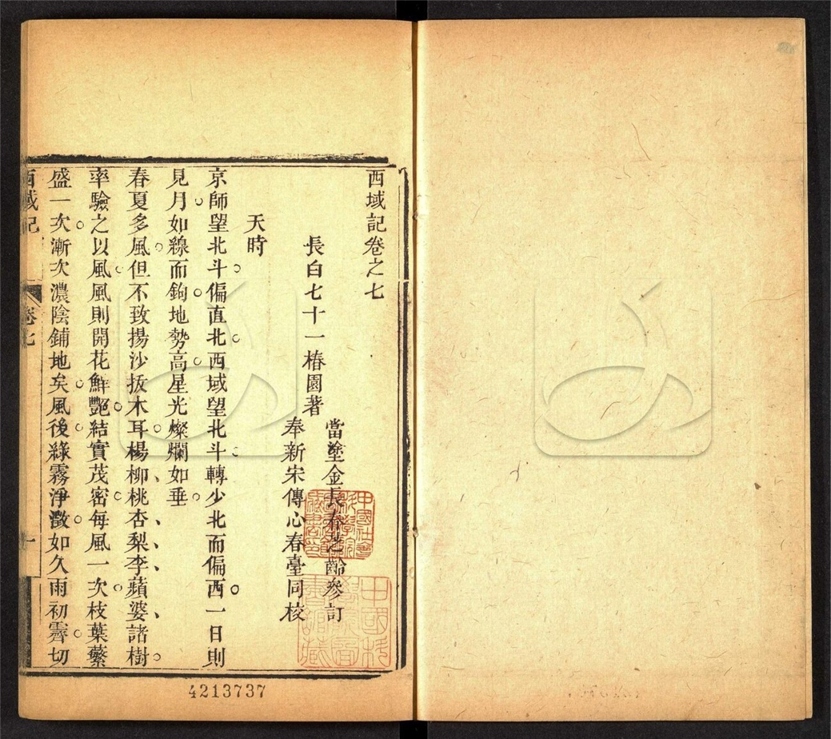 西域記卷之七
當塗金長春芝齡參訂
長白七十一椿園著
奉新宋傳心春臺同校
天時
京師望北斗偏直北西域望北斗轉少北而偏西一日則
見月如線而鉤地勢高星光燦爛如垂
春夏多風但不致揚沙拔木耳楊柳桃杏梨李蘋婆諸樹
率驗之以風風則開花鮮艷結實茂密每風一次枝葉蘩
盛一次漸次濃陰鋪地矣風後綠霧淨斂如久雨初霽切
西域記
卷七
一
4213737